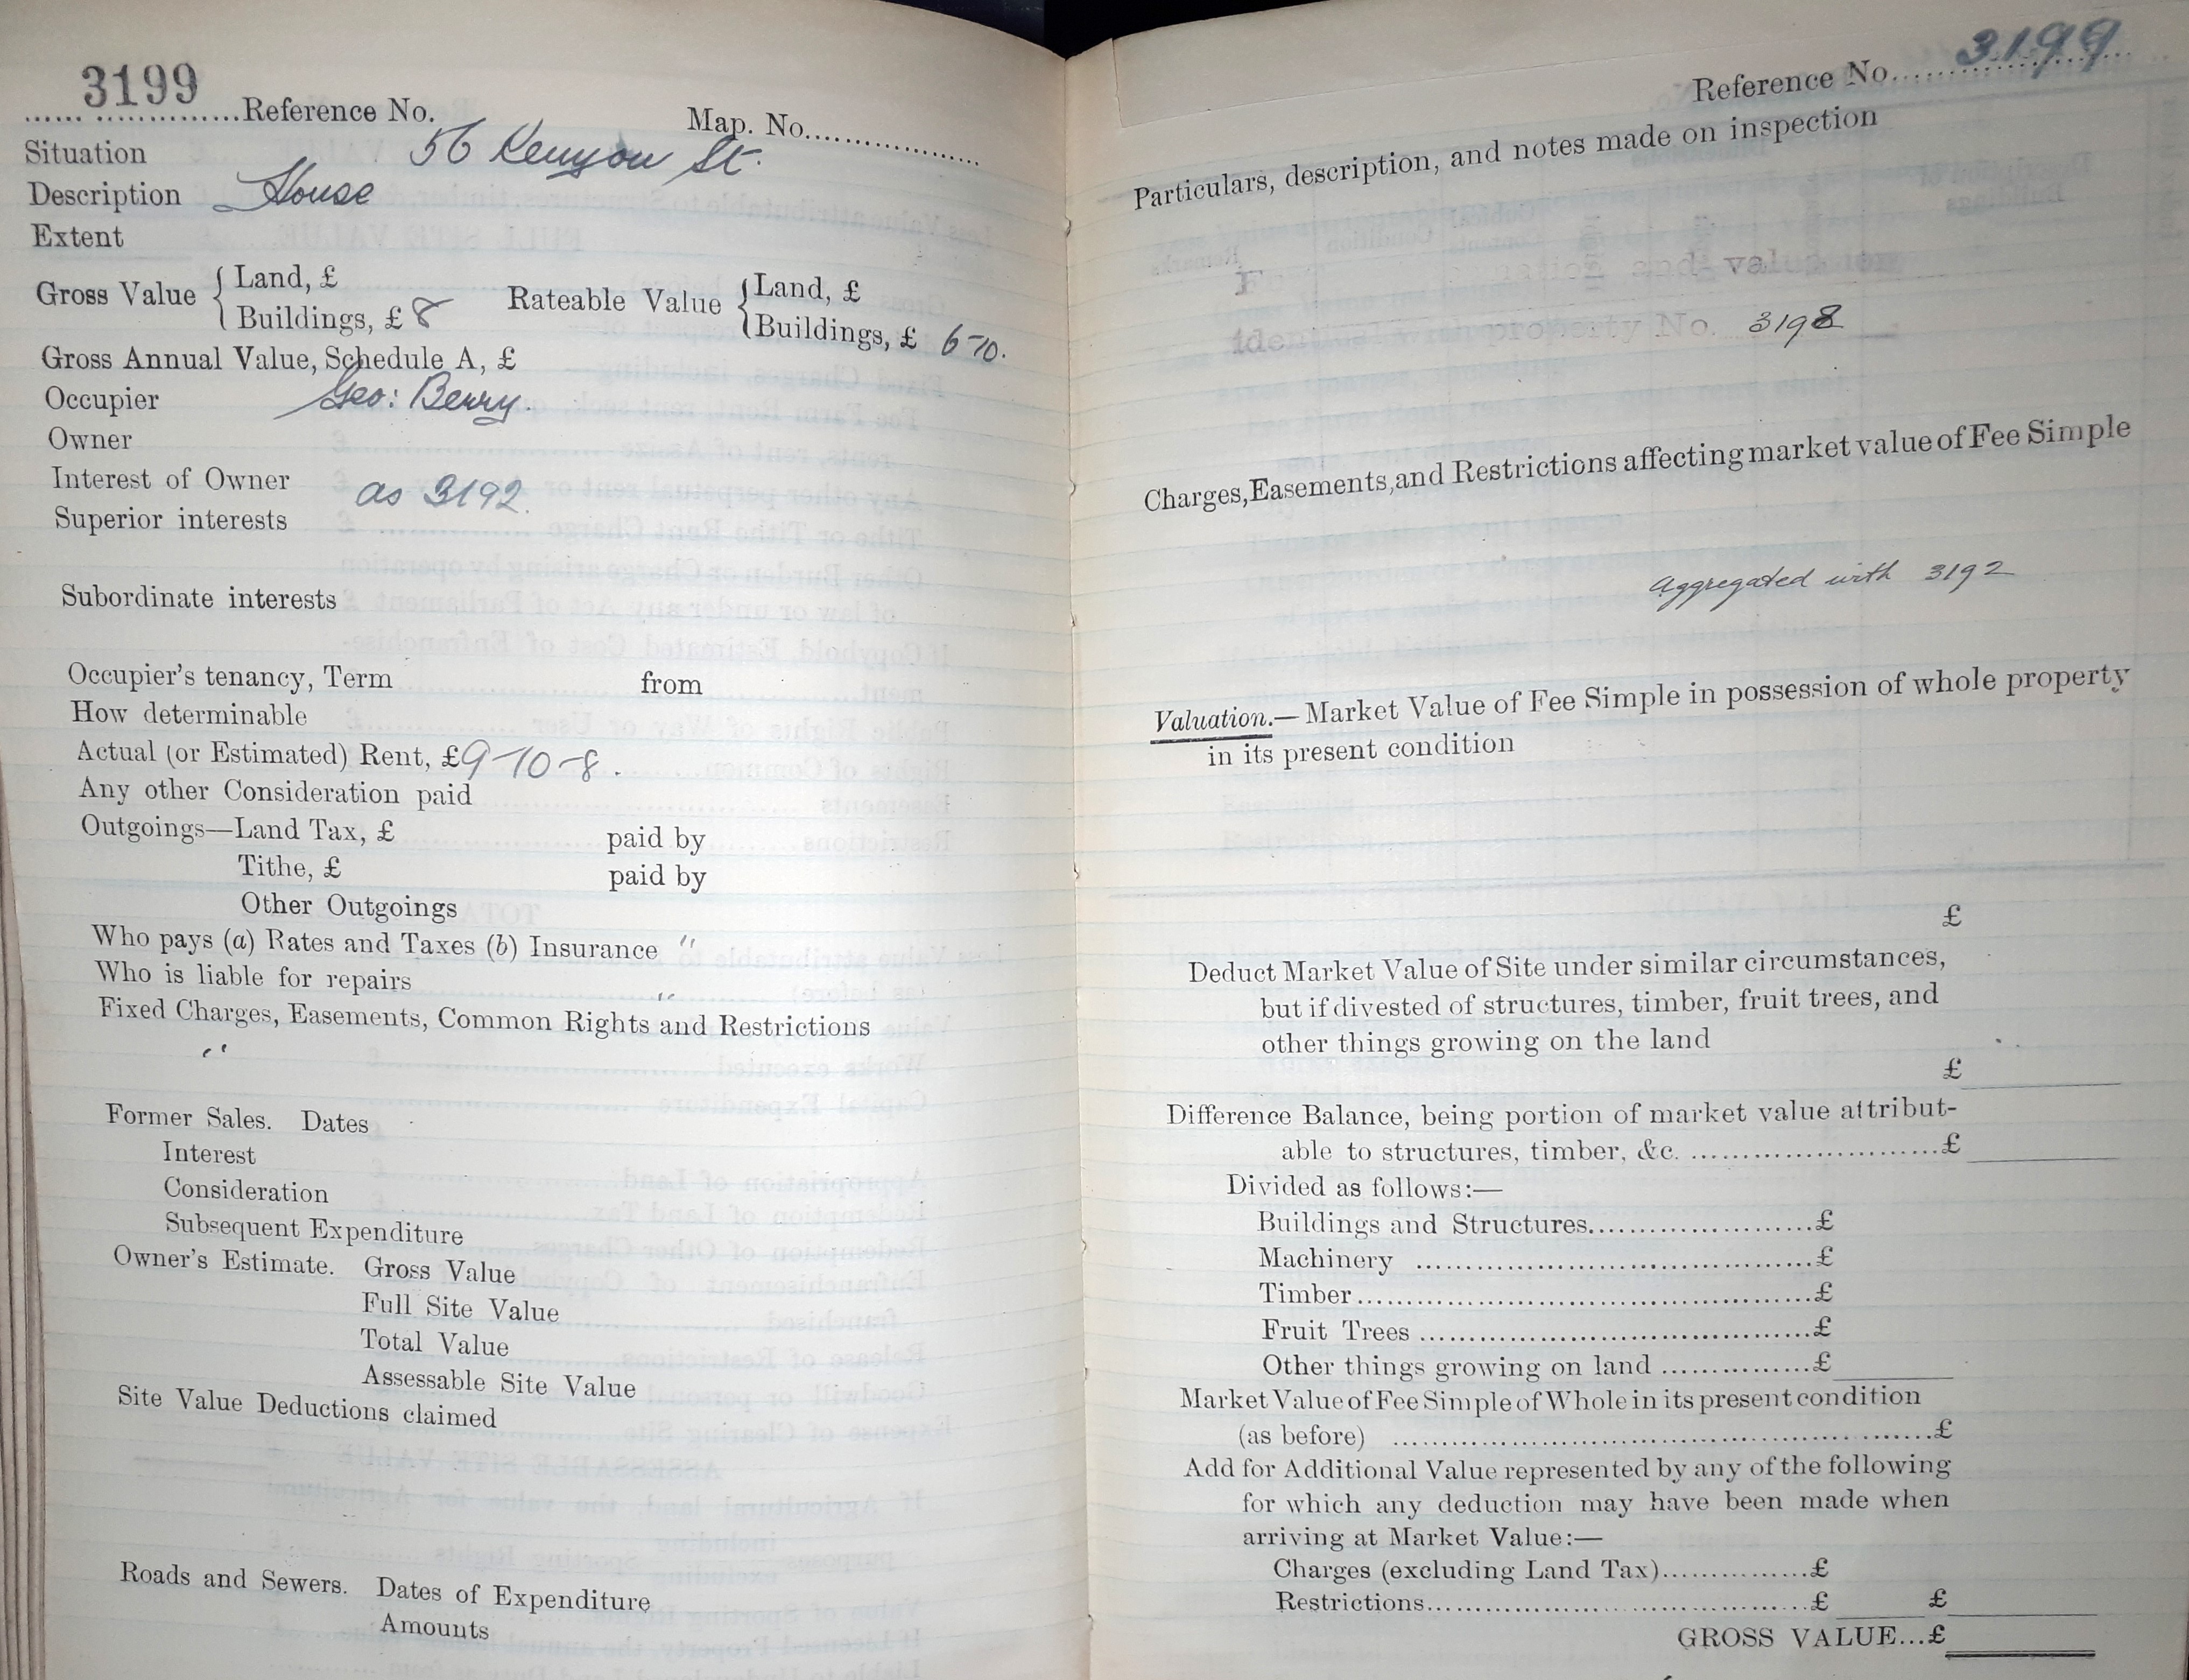 3199
Reference No.
Map. No.
Situation 56 Kenyon St.
Description House
Extent
Gross Value { Land, £
Buildings, £ 8
Rateable Value { Land, £
Buildings, £ 6-10.
Gross Annual Value, Schedule A, £
Occupier Geo: Berry.
Owner
Interest of Owner as 3192.
Superior interests
Subordinate interests
Occupier's tenancy, Term from
How determinable
Actual (or Estimated) Rent, £9-10-8.
Any other Consideration paid
Outgoings—Land Tax, £ paid by
Tithe, £ paid by
Other Outgoings
Who pays (a) Rates and Taxes (b) Insurance "
Who is liable for repairs "
Fixed Charges, Easements, Common Rights and Restrictions
"
Former Sales. Dates
Interest
Consideration
Subsequent Expenditure
Owner's Estimate. Gross Value
Full Site Value
Total Value
Assessable Site Value
Site Value Deductions claimed
Roads and Sewers. Dates of Expenditure
Amounts
Reference No. 3199
Particulars, description, and notes made on inspection
and valuation
identical with property No. 3198
Charges, Easements, and Restrictions affecting market value of Fee Simple
Aggregated with 3192
Valuation.—Market Value of Fee Simple in possession of whole property
in its present condition
£
Deduct Market Value of Site under similar circumstances,
but if divested of structures, timber, fruit trees, and
other things growing on the land
£
Difference Balance, being portion of market value attribut-
able to structures, timber, &c. ........................£
Divided as follows:—
Buildings and Structures........................£
Machinery ........................£
Timber........................£
Fruit Trees ........................£
Other things growing on land ...............£
Market Value of Fee Simple of Whole in its present condition
(as before) ........................£
Add for Additional Value represented by any of the following
for which any deduction may have been made when
arriving at Market Value:—
Charges (excluding Land Tax)...............£
Restrictions........................£ £
GROSS VALUE...£